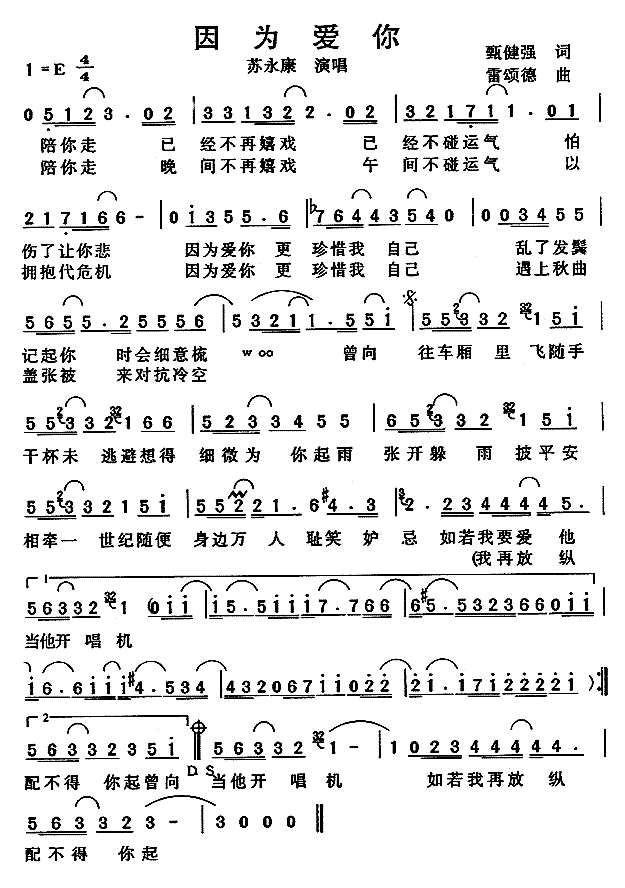 因为爱你
甄健强 词
1=E 4/4 苏永康 演唱 雷颂德 曲
0 5 1 2 3 . 0 2 | 3 3 1 3 2 2 . 0 2 | 3 2 1 7 1 1 . 0 1 |
陪你走 已 经不再嬉戏 已 经不碰运气 怕
陪你走 晚 间不再嬉戏 午 间不碰运气 以
2 1 7 1 6 6 - | 0 i 3 5 5 . 6 | ♭7 6 4 4 3 5 4 0 | 0 0 3 4 5 5 |
伤了让你悲 因为爱你 更 珍惜我 自己 乱了发鬓
拥抱代危机 因为爱你 更 珍惜我 自己 遇上秋曲
5 6 5 5 . 2 5 5 5 6 | 5 3 2 1 1 . 5 5 i | 5 5 3 3 2 1 5 i |
记起你 时会细意梳 woo 曾向 往车厢 里 飞随手
盖张被 来对抗冷空
5 5 3 3 2 1 6 6 | 5 2 3 3 4 5 5 | 6 5 3 3 2 1 5 i |
干杯未 逃避想得 细微为 你起雨 张开躲 雨 披平安
5 5 3 3 2 1 5 i | 5 5 2 2 1 . 6 #4 . 3 | 2 . 2 3 4 4 4 4 5 . |
相牵一 世纪随便 身边万 人 耻笑 妒 忌 如若我要爱 他
(我再放 纵
1
5 6 3 3 2 1 (0 i i | i 5 . 5 i i i 7 . 7 6 6 | #6 5 . 5 3 2 3 6 6 0 i i |
当他开 唱 机
i 6 . 6 i i i #4 . 5 3 4 | 4 3 2 0 6 7 i i 0 2 2 | 2 i . i 7 i 2 2 2 2 i ) :||
2
5 6 3 3 2 3 5 i || 5 6 3 3 2 1 - | 1 0 2 3 4 4 4 4 4 . |
配不得 你起曾向 D S. 当他开 唱 机 如若我再放 纵
5 6 3 3 2 3 - | 3 0 0 0 ||
配不得 你起